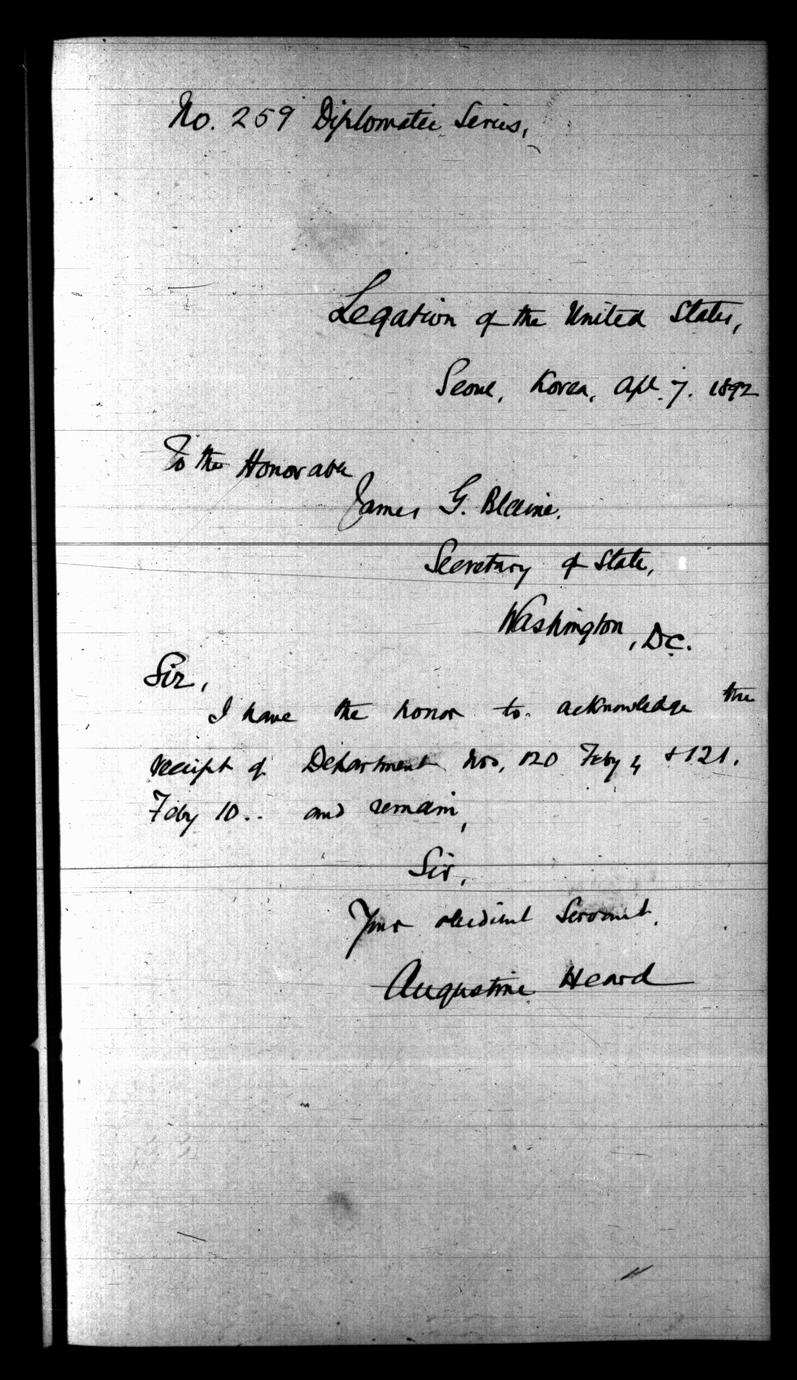 No. 259 Diplomatic Series,
Legation of the United States,
Seoul, Korea, Apl. 7. 1892
To the Honorable
James G. Blaine.
Secretary of State,
Washington, D.C.
Sir,
I have the honor to acknowledge the
receipt of Department Nos, 120 Feby 4 & 121.
Feby 10.. and remain,
Sir,
Your obedient Servant.
Augustine Heard